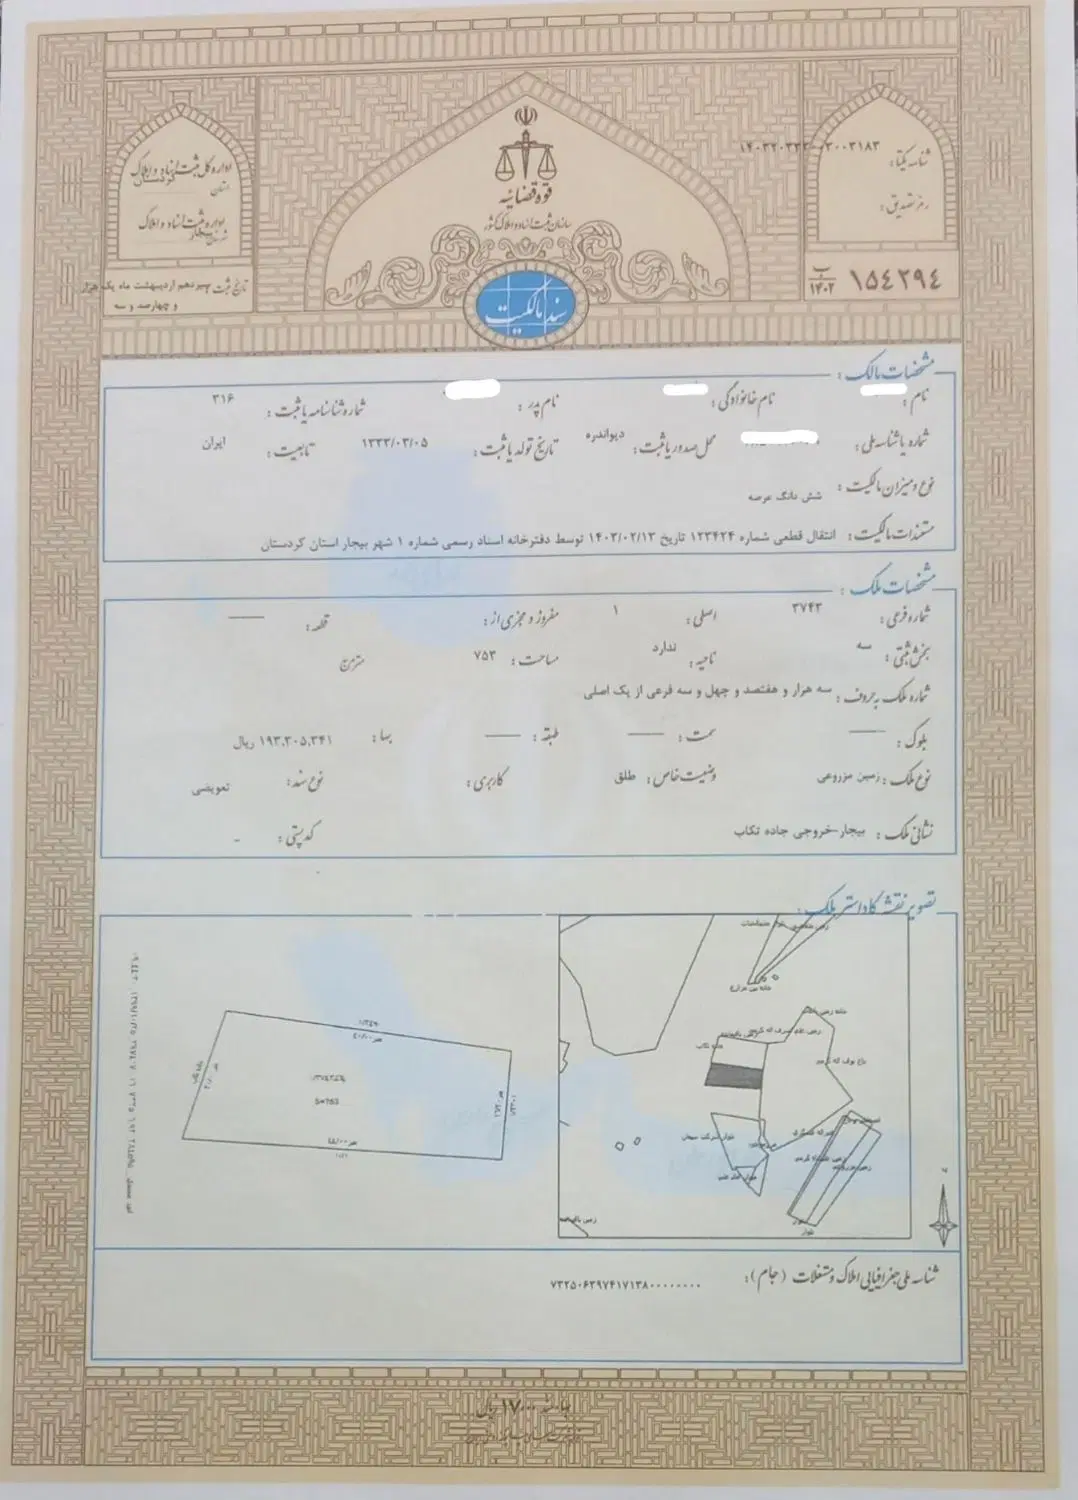 قوه قضائیه
سازمان ثبت اسناد و املاک کشور
سند مالکیت
شناسه یکتا:
رمز تصدیق:
۱۵۴۲۹۴ ب ۱۴۰۲
اداره کل ثبت اسناد و املاک
استان کردستان
اداره ثبت اسناد و املاک
شهرستان بیجار
تاریخ ثبت سیزدهم اردیبهشت ماه یک هزار
و چهارصد و سه
مشخصات مالک:
نام: نام خانوادگی: نام پدر: شماره شناسنامه یا ثبت: ۳۱۶
شماره یا شناسه ملی: محل صدور یا ثبت: دیواندره تاریخ تولد یا ثبت: ۱۳۳۳/۰۳/۰۵ تابعیت: ایران
نوع و میزان مالکیت: شش دانگ عرصه
مستندات مالکیت: انتقال قطعی شماره ۱۲۳۴۲۴ تاریخ ۱۴۰۳/۰۲/۱۳ توسط دفترخانه اسناد رسمی شماره ۱ شهر بیجار استان کردستان
مشخصات ملک:
شماره فرعی: ۳۷۴۳ اصلی: ۱ مفروز و مجزی از: قطعه: ——
بخش ثبتی: سه ناحیه: ندارد مساحت: ۷۵۳ مترمربع
شماره ملک به حروف: سه هزار و هفتصد و چهل و سه فرعی از یک اصلی
بلوک: —— سمت: —— طبقه: —— بها: ۱۹۳,۳۰۵,۳۴۱ ریال
نوع ملک: زمین مزروعی وضعیت خاص: طلق کاربری: نوع سند: تعویضی
نشانی ملک: بیجار-خروجی جاده تکاب کد پستی: -
تصویر نقشه کاداستر ملک:
S=753
شناسه ملی جغرافیایی املاک و مستغلات (جام): ۷۳۲۵۰۶۳۹۷۴۱۷۱۳۸۰۰۰۰۰۰۰۰